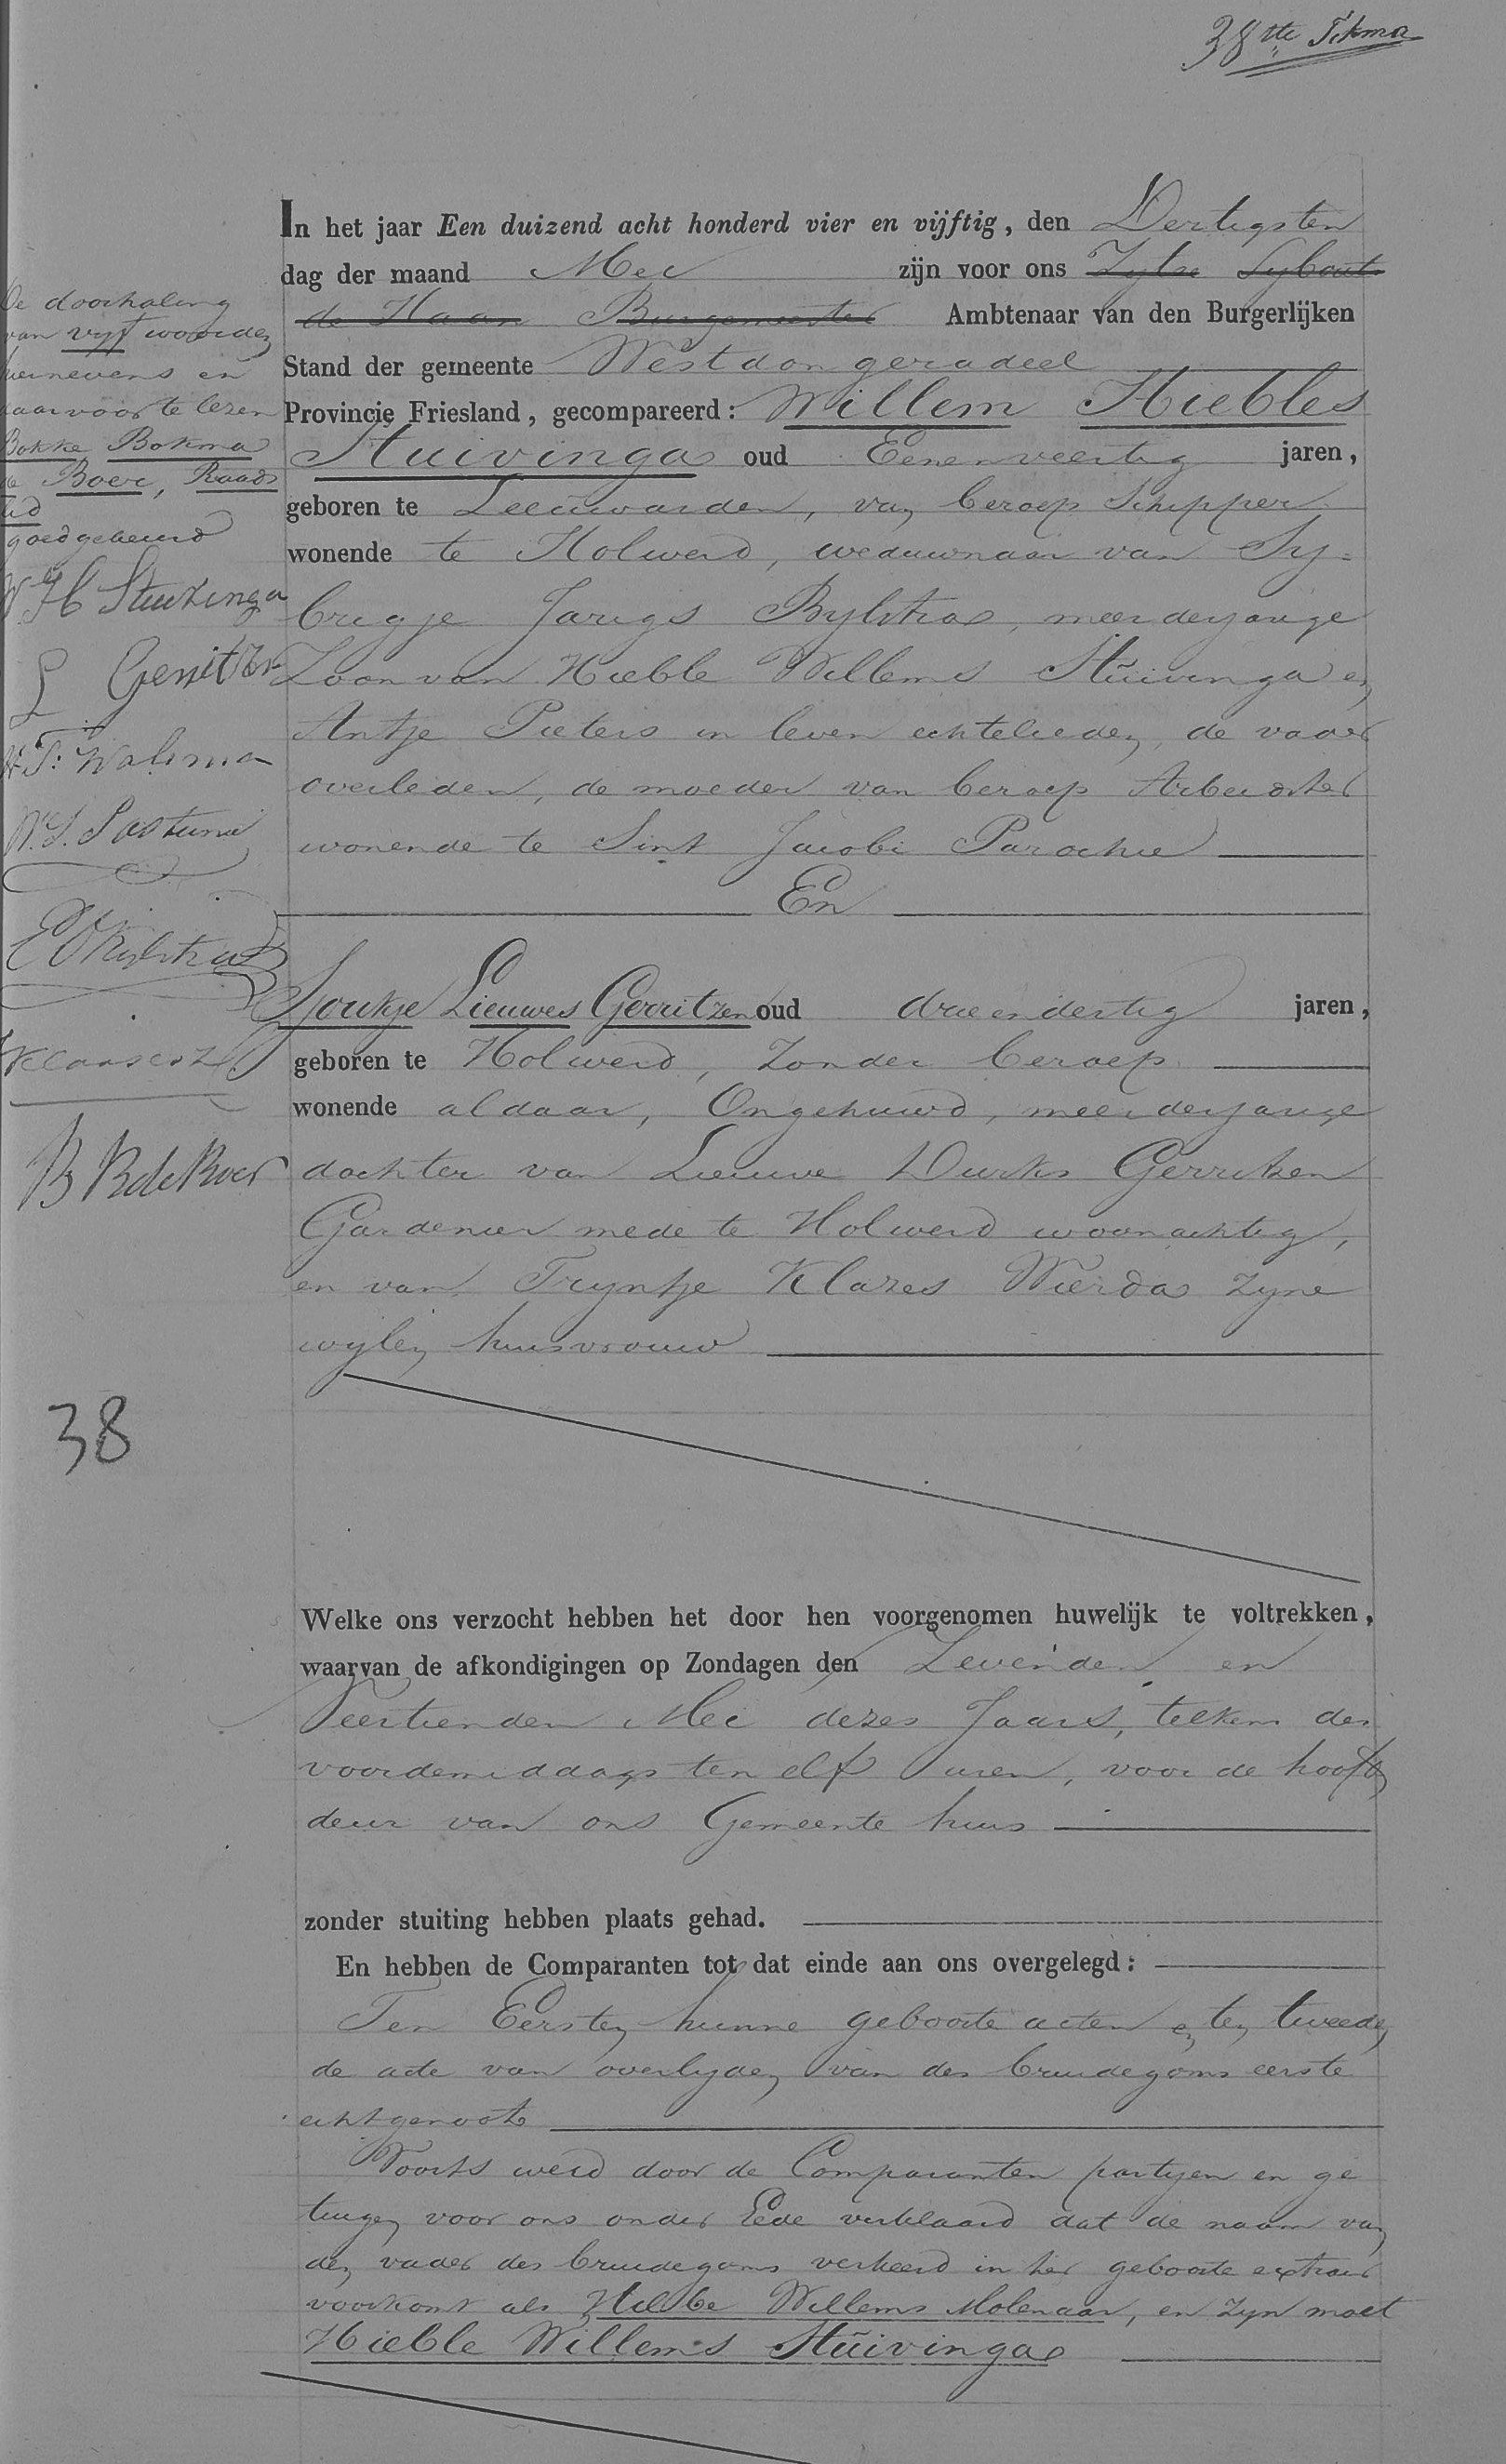 38ste
In het jaar Een duizend acht honderd vier en vijftig, den Dertigsten
dag der maand Mei zijn voor ons Zytse Sybout
de Haan Burgemeester Ambtenaar van den Burgerlijken
Stand der gemeente Westdongeradeel
Provincie Friesland, gecompareerd: Willem Hiebles
Stuivinga oud Eenenveertig jaren,
geboren te Leeuwarden, van beroep Schipper
wonende te Holwerd, weduwnaar van Sy-
brigje Jarigs Bylstra, meerderjarige
Zoon van Hieble Willems Stuivinga en
Antje Pieters in leven echtelieden, de vader
overleden, de moeder van beroep Arbeidster
wonende te Sint Jacobi Parochie
En
Sjoukje Lieuwes Gerritzen oud drieendertig jaren,
geboren te Holwerd, Zonder beroep
wonende aldaar, Ongehuwd, meerderjarige
dochter van Lieuwe Durks Gerritzen
Gardenier mede te Holwerd woonachtig,
en van Tryntje Klazes Wierda zyne
wylen huisvrouw
Welke ons verzocht hebben het door hen voorgenomen huwelijk te voltrekken,
waarvan de afkondigingen op Zondagen den Zevenden en
Veertienden Mei dezes Jaars, telkens des
voordemiddags ten elf uren, voor de hoofd
deur van ons Gemeente huis
zonder stuiting hebben plaats gehad.
En hebben de Comparanten tot dat einde aan ons overgelegd:
Ten Eersten hunne geboorte acten en ten tweeden
de acte van overlyden van des bruidegoms eerste
echtgenoote
Voorts werd door de Comparanten partyen en ge
tuigen voor ons onder Eede verklaard dat de naam van
den vader des bruidegoms verkeerd in het geboorte extract
voorkomt als Hilbe Willems Molenaar, en zyn moet
Hieble Willems Stuivinga
De doorhaling
van vyf woorden
hiernevens en
daarvoor te lezen
Bokke Bokma
de Boer, Raads
lid
goedgekeurd
W H Stuivinga
L Gerritzen
W. S. Postuma
B B de Boer
38